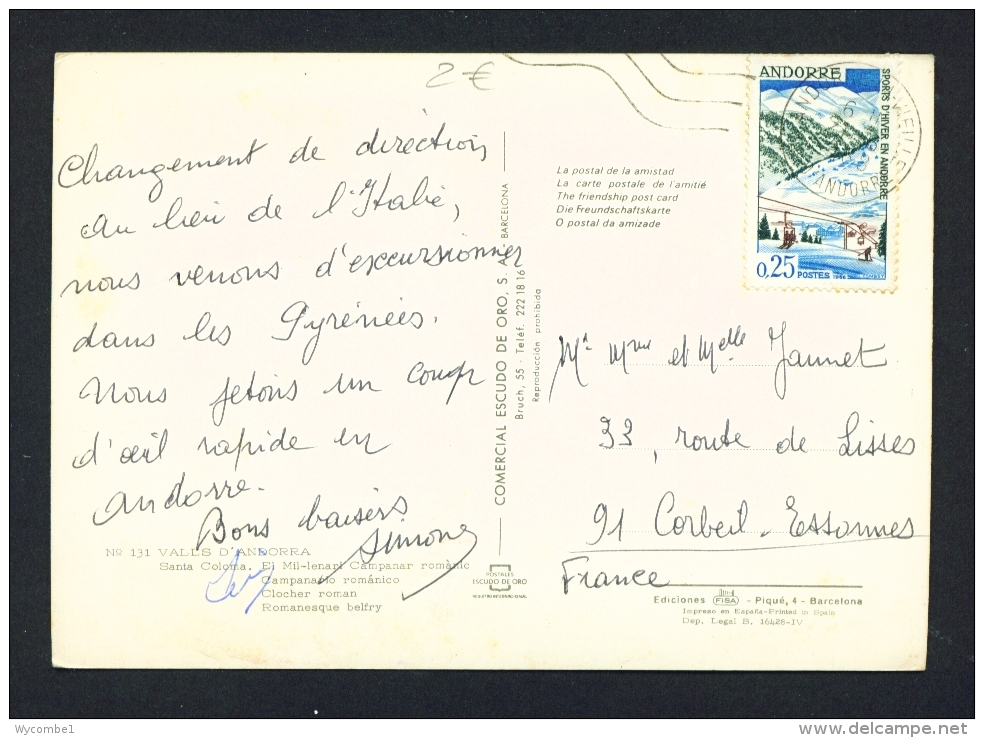 2 €
Changement de direction,
Au lieu de l'Italie,
nous venons d'excursionner
dans les Pyrénées.
Nous jetons un coup
d'œil rapide en
Andorre.
Bons baisers
Simone
Nº 131 VALLS D'ANDORRA
Santa Coloma. El Mil-lenari Campanar romànic
Campanario románico
Clocher roman
Romanesque belfry
COMERCIAL ESCUDO DE ORO, S. A. BARCELONA
Bruch, 55 - Teléf. 222 18 16
Reproducción prohibida
POSTALES
ESCUDO DE ORO
REGISTRO INTERNACIONAL
La postal de la amistad
La carte postale de l'amitié
The friendship post card
Die Freundschaftskarte
O postal da amizade
ANDORRE
SPORTS D'HIVER EN ANDORRE
0,25 POSTES 1966
ANDORRE
Mr Mme et Melle Jaunet
33, route de Lisses
91 Corbeil-Essonnes
France
Ediciones FISA - Piqué, 4 - Barcelona
Impreso en España-Printed in Spain
Dep. Legal B. 16428-IV
Wycombe1
www.delcampe.net